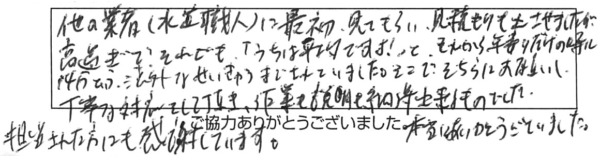 他の業者(水道職人)に最初、見てもらい、見積もりも出させましたが
高過ぎで、それでも「うちは平均ですよ!」と、それから年寄りだけの時に
14万という法外なせいきゅうまでされていました。そこで、そちらにお願いし、
丁寧な対応をして頂き、作業も説明も納得出来るものでした。
担当された方にも感謝しています。
ご協力ありがとうございました
本当にありがとうございました。